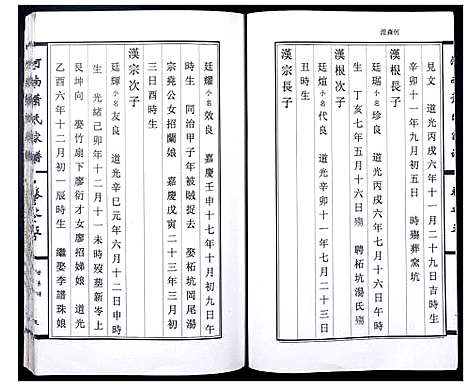 何森源
見文 道光丙戌六年十一月十一日吉時生
辛卯十一年九月初五日 時殤葬窯坑
漢根次子
廷瑞小名珍良 道光丙戌六年十月十一日
生 丁亥七年五月十六日殤 聘柘坑湯氏
廷煊小名代良 道光辛卯十一年九月十六日
丑時生
漢宗長子
廷耀小名效良 嘉慶壬申十七年十月初九日午
時生 同治甲子年被賊捉去 娶柘坑岡尾湯
宗堯公女招蘭娘 嘉慶戊寅二十三年三月初
三日酉時生
漢宗次子
廷輝小名友良 道光辛巳元年六月十二日申時
生 光緒己卯年十二月十一未時歿墓新岑上
艮坤向 娶竹扇下廖衍才女廖招娣娘 道光
乙酉六年十二月初一辰時生 繼娶李譜珠娘
河南蕭氏家譜
卷之五